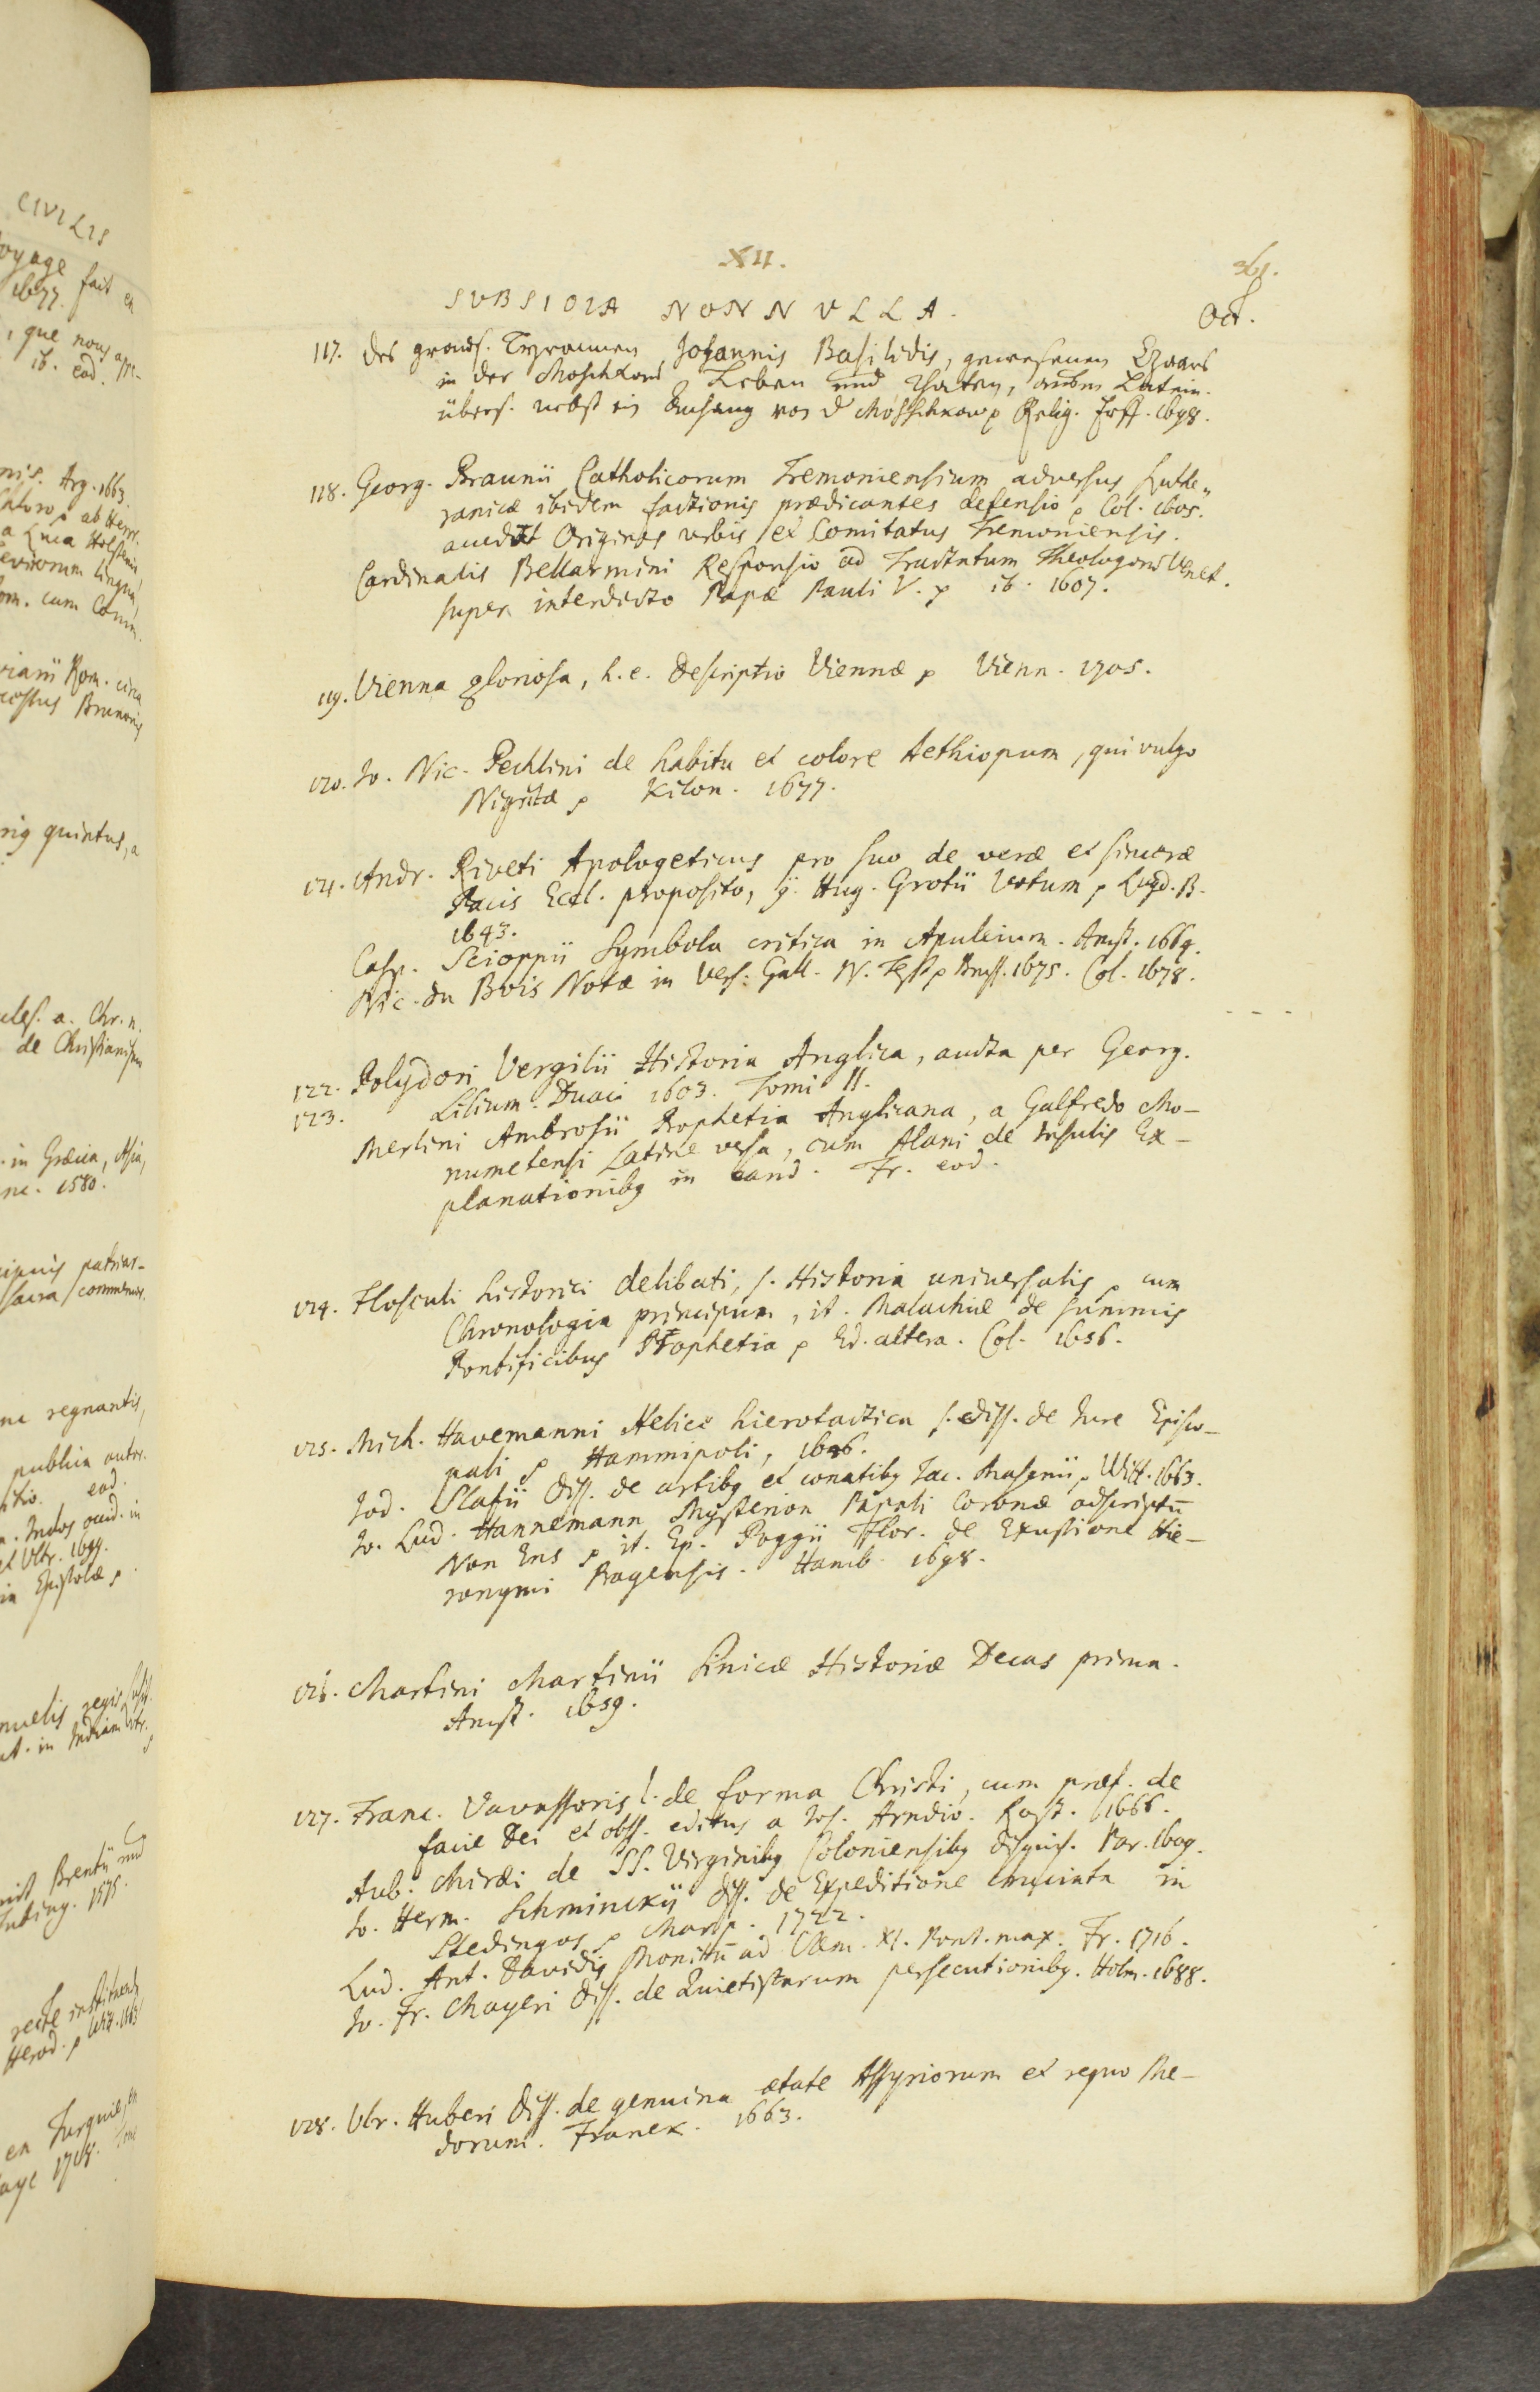 CIVILIS
voyage fait en
1677.
, que nous
ib. eod.
Arg. 1663
ab Herr.
a Luca Holstenio
lingua
cum Comm.
Rom. circa
quintus, a
a. Chr. n.
de Christianismo
in Græcia, Asia,
1580.
patriar-
sacra commemor.
regnantis,
publica autor.
eod.
Indos occid. in
Epistolæ
regis
in Indiam
Brentii und
Tubing. 1575.
recte instituenda
Herod.
en Turquie, en
1718.
XII.
361.
SUBSIDIA NONNULLA.
Oct.
117. Des graus. Tyrannen Johannis Basilidis, gewesenen Czaars
in der Moschkow Leben und Thaten, aus dem Latein.
übers. nebst ein Anhang von d Moschkow. Relig. Frff. 1698.
118. Georg. Braunii Catholicorum Tremoniensium adversus Luthe„
ranicæ ibidem factionis prædicantes defensio p Col. 1605.
auctot Origines urbis et Comitatus Tremoniensis.
Cardinalis Bellarmini Responsio ad Tractatum Theologorū Venet.
super interdicto Papæ Pauli V. p ib. 1607.
119. Vienna gloriosa, h. e. descriptio Viennæ p Vienn. 1705.
120. Jo. Nic. Pechlini de habitu et colore Aethiopum, qui vulgo
Nigritæ p Kilon. 1677.
121. Andr. Riveti Apologeticus pro suo de veræ et sinceræ
Pacis Eccl. proposito, g. Hug. Grotii Votum p Lugd. B.
1643.
Casp. Scioppii Symbola critica in Apuleium. Amst. 1664.
Nic. du Bois Notæ in vers. Gall. N. Test. p Bruss. 1675. Col. 1678.
122. Polydori Vergilii Historia Anglica, aucta per Georg.
123. Lilium. Duaci 1603. Tomi II.
Merlini Ambrosii Prophetia Anglicana, a Galfredo Mo-
numetensi Latine versa, cum Alani de Insulis Ex-
planationibg in eand. Fr. eod.
124. Flosculi historici delibati, s. Historia universalis p cum
Chronologia principum, it. Malachiæ de summis
Pontificibus Prophetia p Ed. altera. Col. 1656.
125. Mich. Havemanni Helice hierotactica s. diss. de Jure Episco-
pali p Hammipoli, 1646.
Jod. Slafii diss. de artibg et conatibg Jac. Masenii p Witt. 1663.
Jo. Lud. Hannemann Mysterion Papali Coronæ adscriptū
Non Ens p it. Ep. Poggii Flor. de Exustione Hie-
ronymi Pragensis. Hamb. 1698.
126. Martini Martinii Sinicæ Historiæ Decas prima.
Amst. 1659.
127. Franc. Vavassoris l. de forma Christi, cum præf. de
facie Dei et obss. editus a Jos. Arndio. Rost. 1666.
Aub. Miræi de SS. Virginibg Coloniensibg disquis. Par. 1609.
Jo. Herm. Schminckii diss. de Expeditione cruciata in
Stedingos p Marp. 1722.
Lud. Ant. Davidis Monitū ad Clem. XI. Pont. max. Fr. 1716.
Jo. Fr. Mayeri diss. de Quietistarum persecutionibg. Holm. 1688.
128. Ulr. Huberi diss. de genuina ætate Assyriorum et regno Me-
dorum. Franek. 1663.